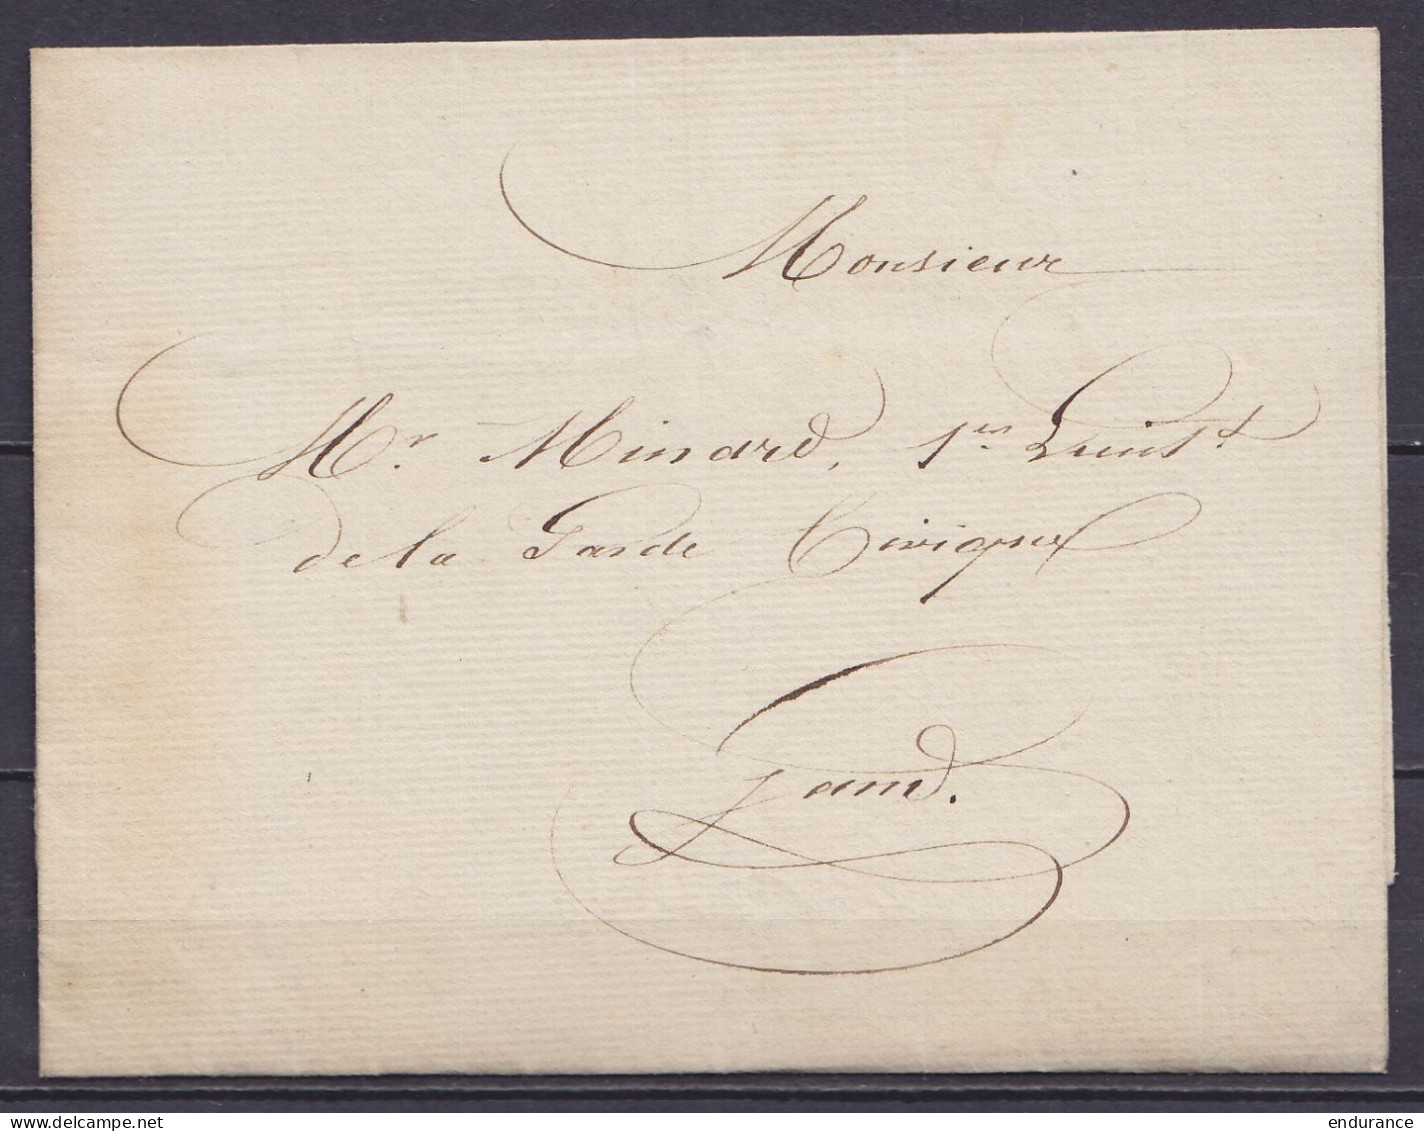 Monsieur
Mr. Minard, 1er Lieut.t
de la Garde Civique
Gand.
delcampe.net
endurance